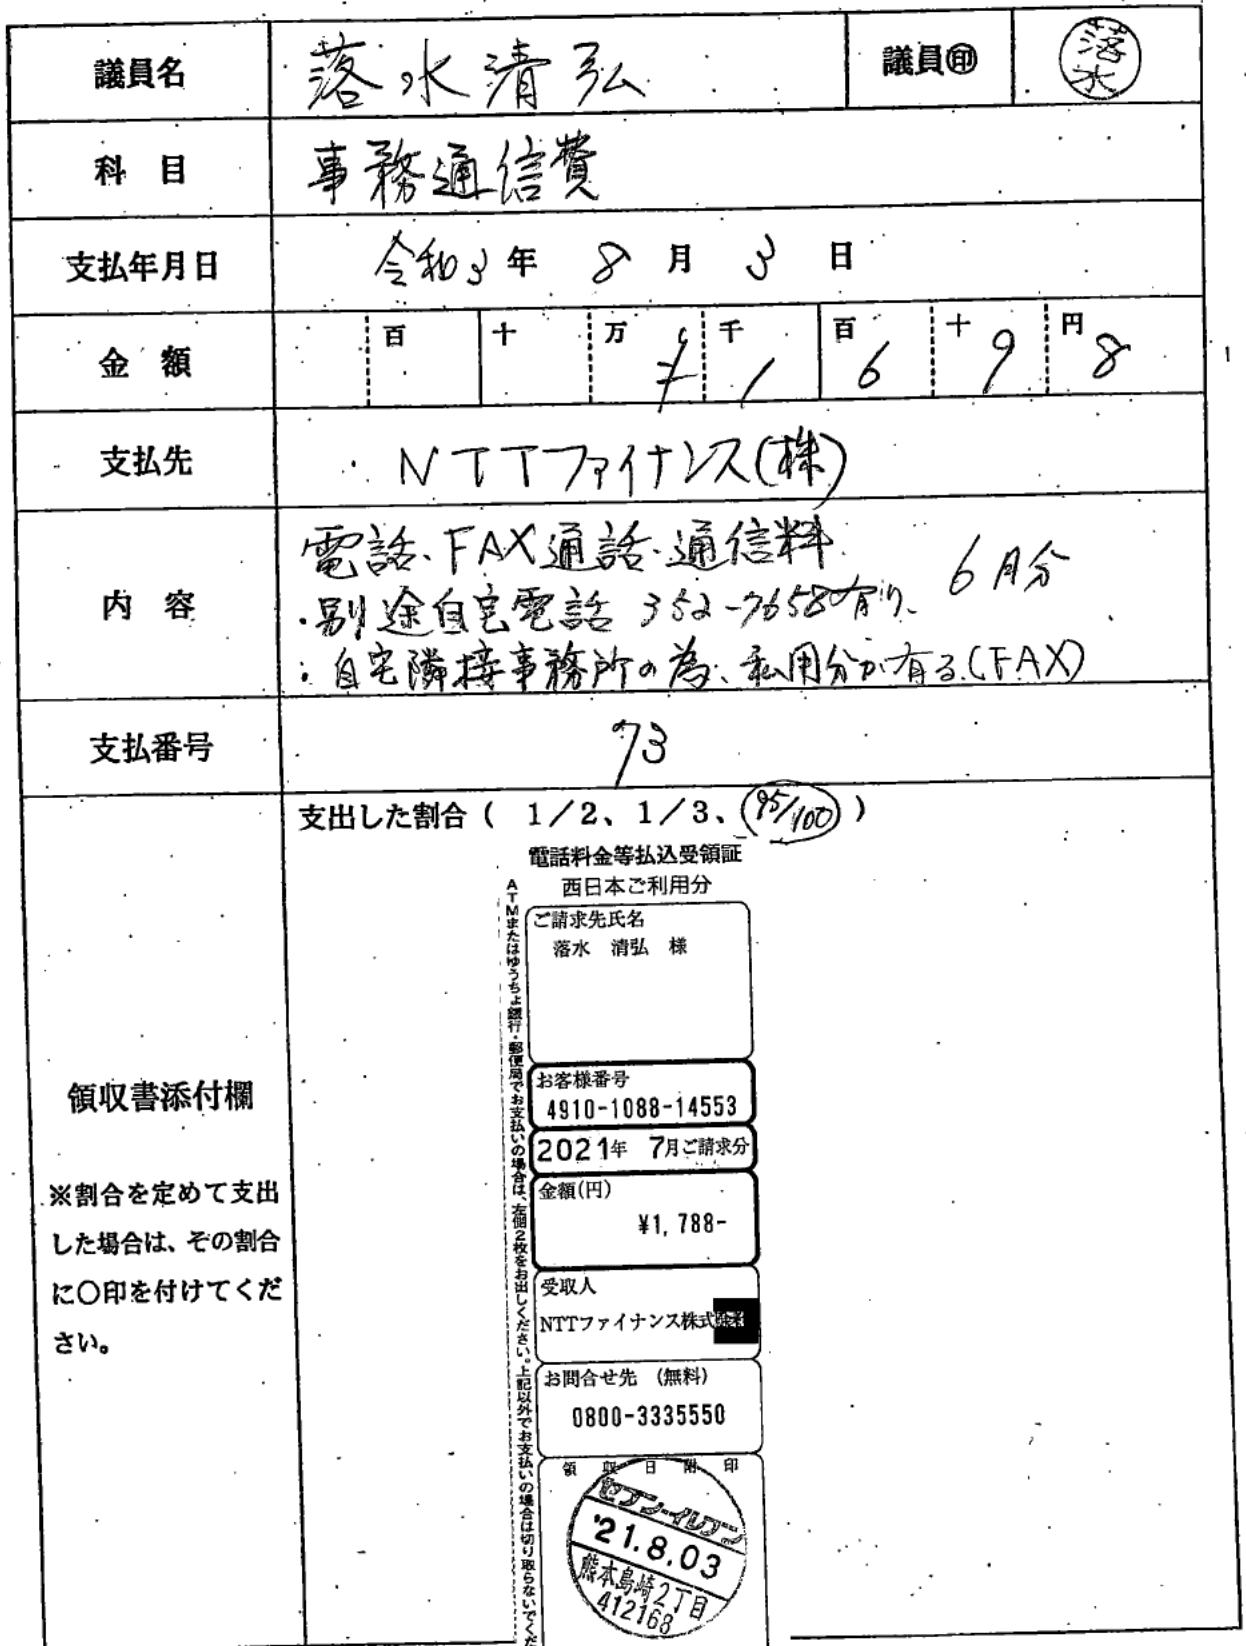 議員名 落水清弘 議員㊞ 落水
科目 事務通信費
支払年月日 令和3年 8月 3日
金額 百 十 万 ¥ 千 1 百 6 十 9 円 8
支払先 NTTファイナンス(株)
内容 電話、FAX通話・通信料 6月分
・別途自宅電話 352-7658有り、
・自宅隣接事務所の為、私用分が有る(FAX)
支払番号 73
支出した割合 ( 1/2、1/3、95/100 )
領収書添付欄
※割合を定めて支出
した場合は、その割合
に〇印を付けてくだ
さい。
電話料金等払込受領証
西日本ご利用分
ATMまたはゆうちょ銀行・郵便局でお支払いの場合は、左側2枚をお出しください。上記以外でお支払いの場合は切り取らないでくだ
ご請求先氏名
落水 清弘 様
お客様番号
4910-1088-14553
2021年 7月ご請求分
金額(円)
¥1,788-
受取人
NTTファイナンス株式
お問合せ先 (無料)
0800-3335550
領収日附印
セブン-イレブン
'21.8.03
熊本島崎2丁目
412168